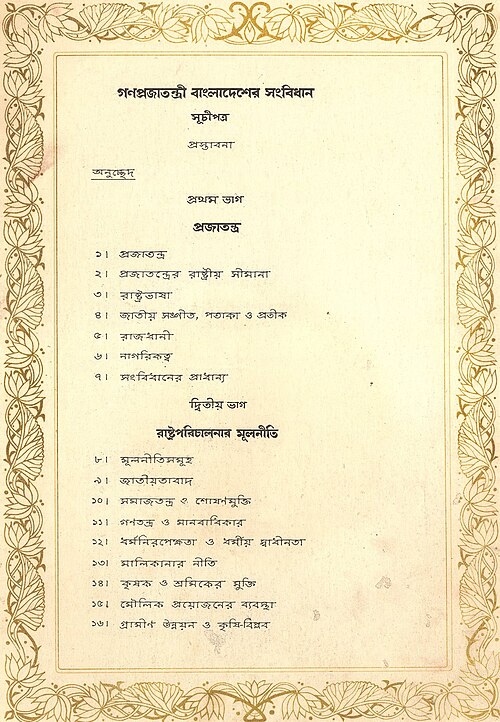 গণপ্রজাতন্ত্রী বাংলাদেশের সংবিধান
সূচীপত্র
প্রস্তাবনা
অনুচ্ছেদ
প্রথম ভাগ
প্রজাতন্ত্র
১। প্রজাতন্ত্র
২। প্রজাতন্ত্রের রাষ্ট্রীয় সীমানা
৩। রাষ্ট্রভাষা
৪। জাতীয় সঙ্গীত, পতাকা ও প্রতীক
৫। রাজধানী
৬। নাগরিকত্ব
৭। সংবিধানের প্রাধান্য
দ্বিতীয় ভাগ
রাষ্ট্রপরিচালনার মূলনীতি
৮। মূলনীতিসমূহ
৯। জাতীয়তাবাদ
১০। সমাজতন্ত্র ও শোষণমুক্তি
১১। গণতন্ত্র ও মানবাধিকার
১২। ধর্মনিরপেক্ষতা ও ধর্মীয় স্বাধীনতা
১৩। মালিকানার নীতি
১৪। কৃষক ও শ্রমিকের মুক্তি
১৫। মৌলিক প্রয়োজনের ব্যবস্থা
১৬। গ্রামীণ উন্নয়ন ও কৃষি-বিপ্লব